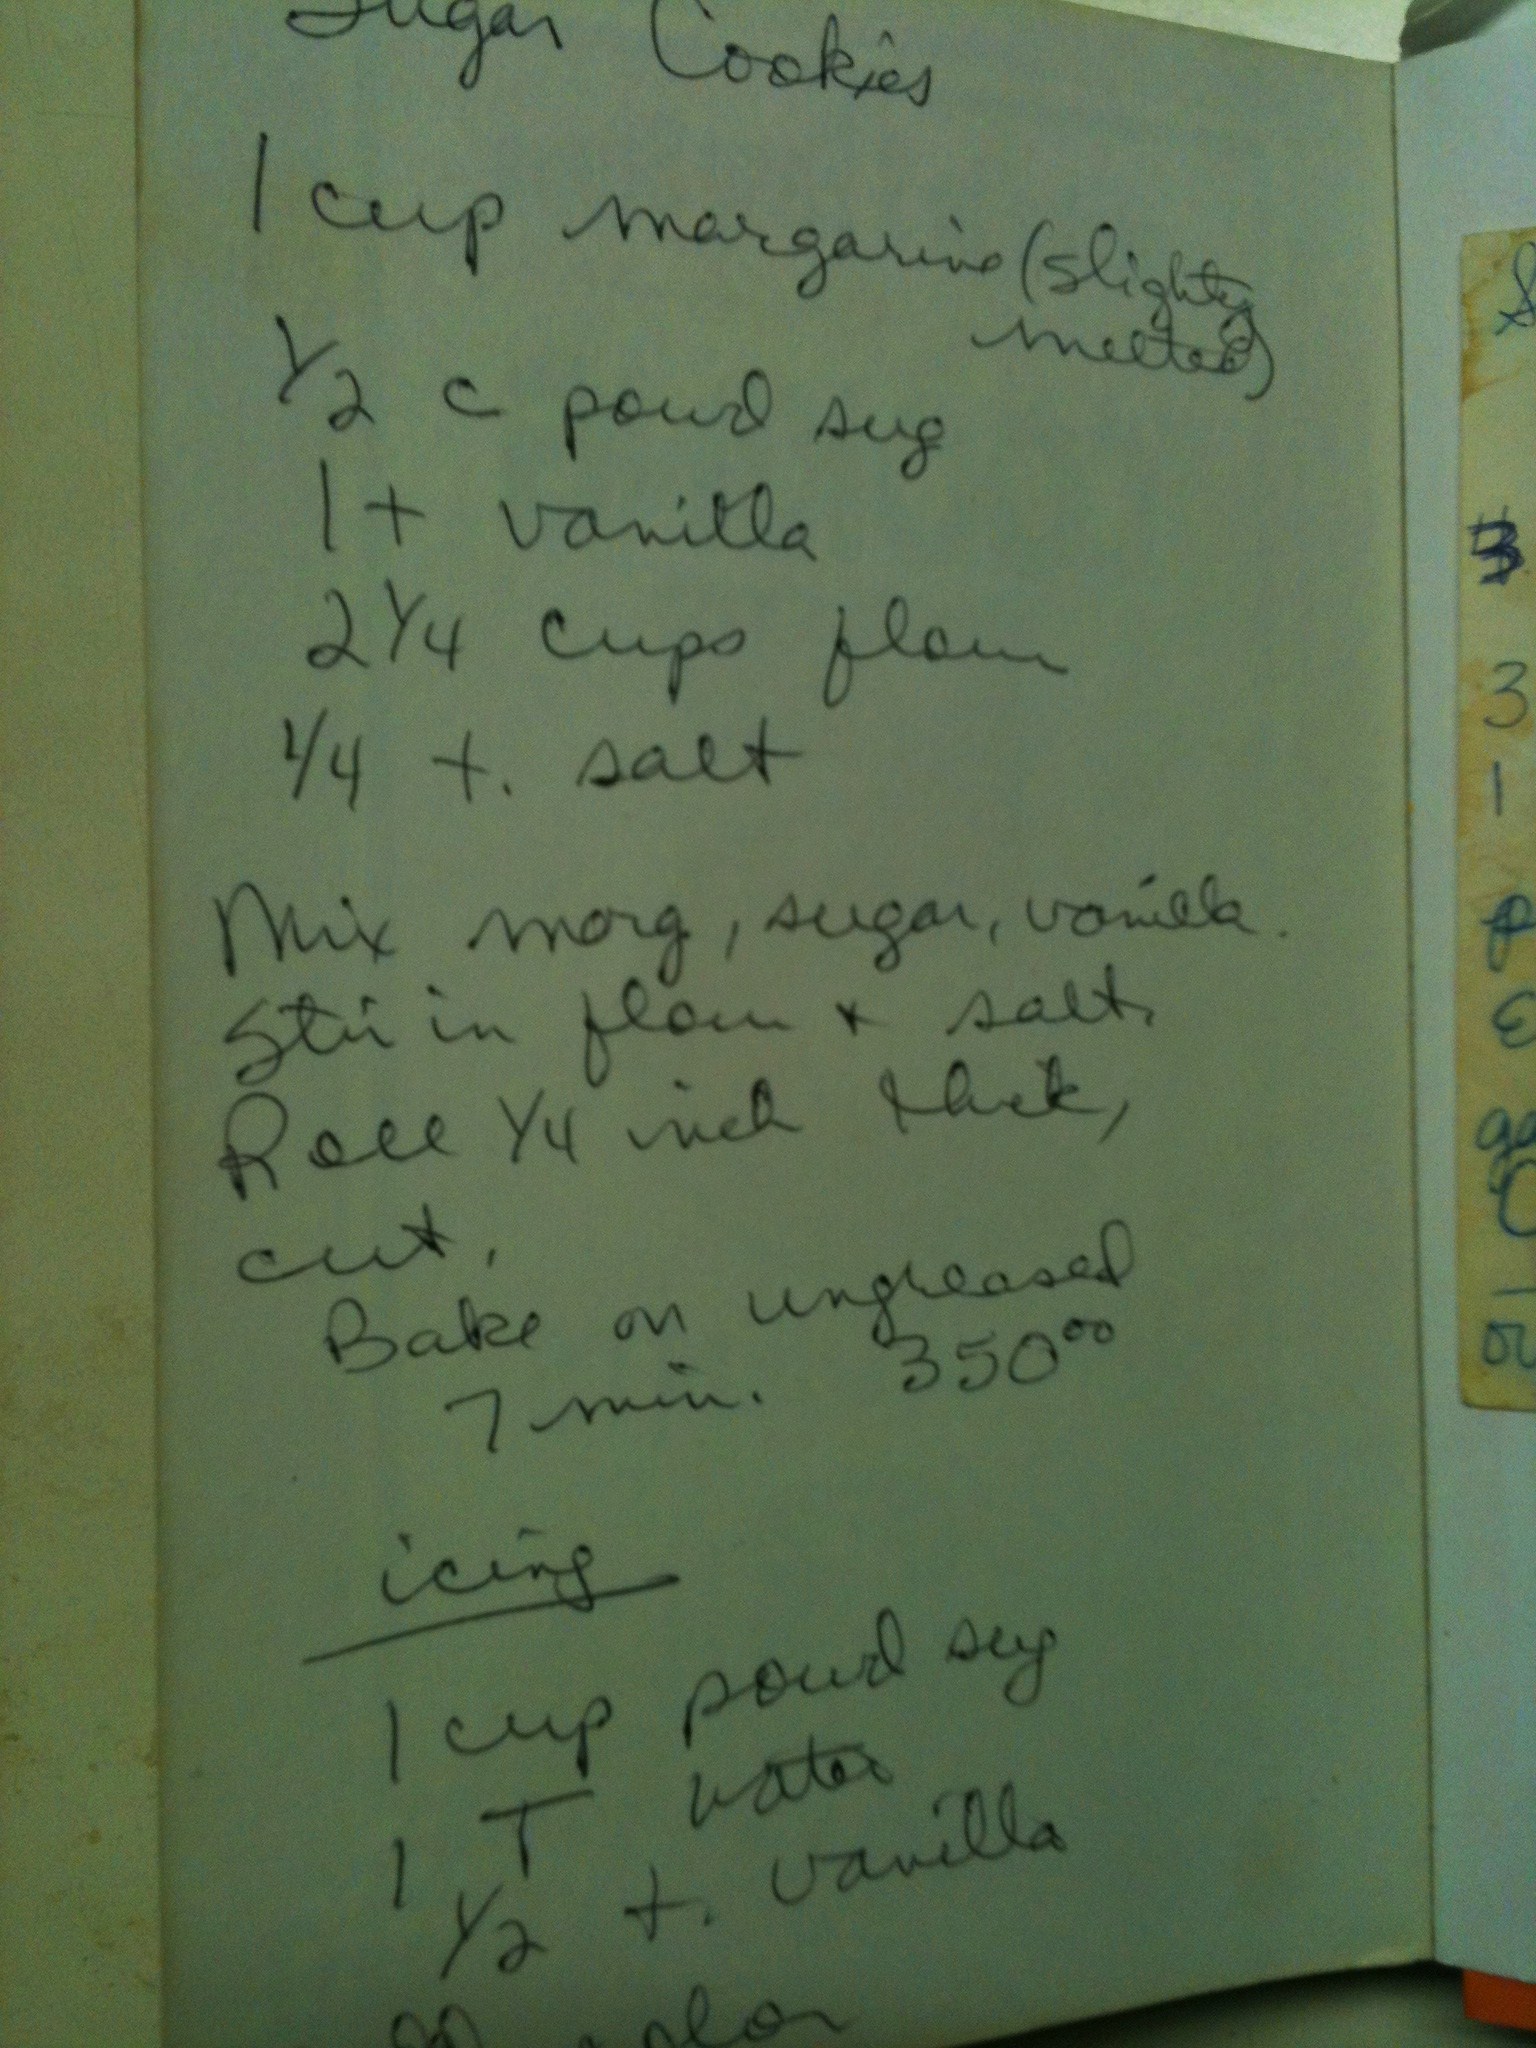 Sugar Cookies
1 cup margarine (slightly
melted)
1/2 c powd sug
1 t vanilla
2 1/4 cups flour
1/4 t. salt
Mix marg, sugar, vanilla.
Stir in flour & salt.
Roll 1/4 inch thick,
cut.
Bake on ungreased
7 min. 350°°
icing
1 cup powd sug
1 T water
1/2 t. vanilla
color
3
1